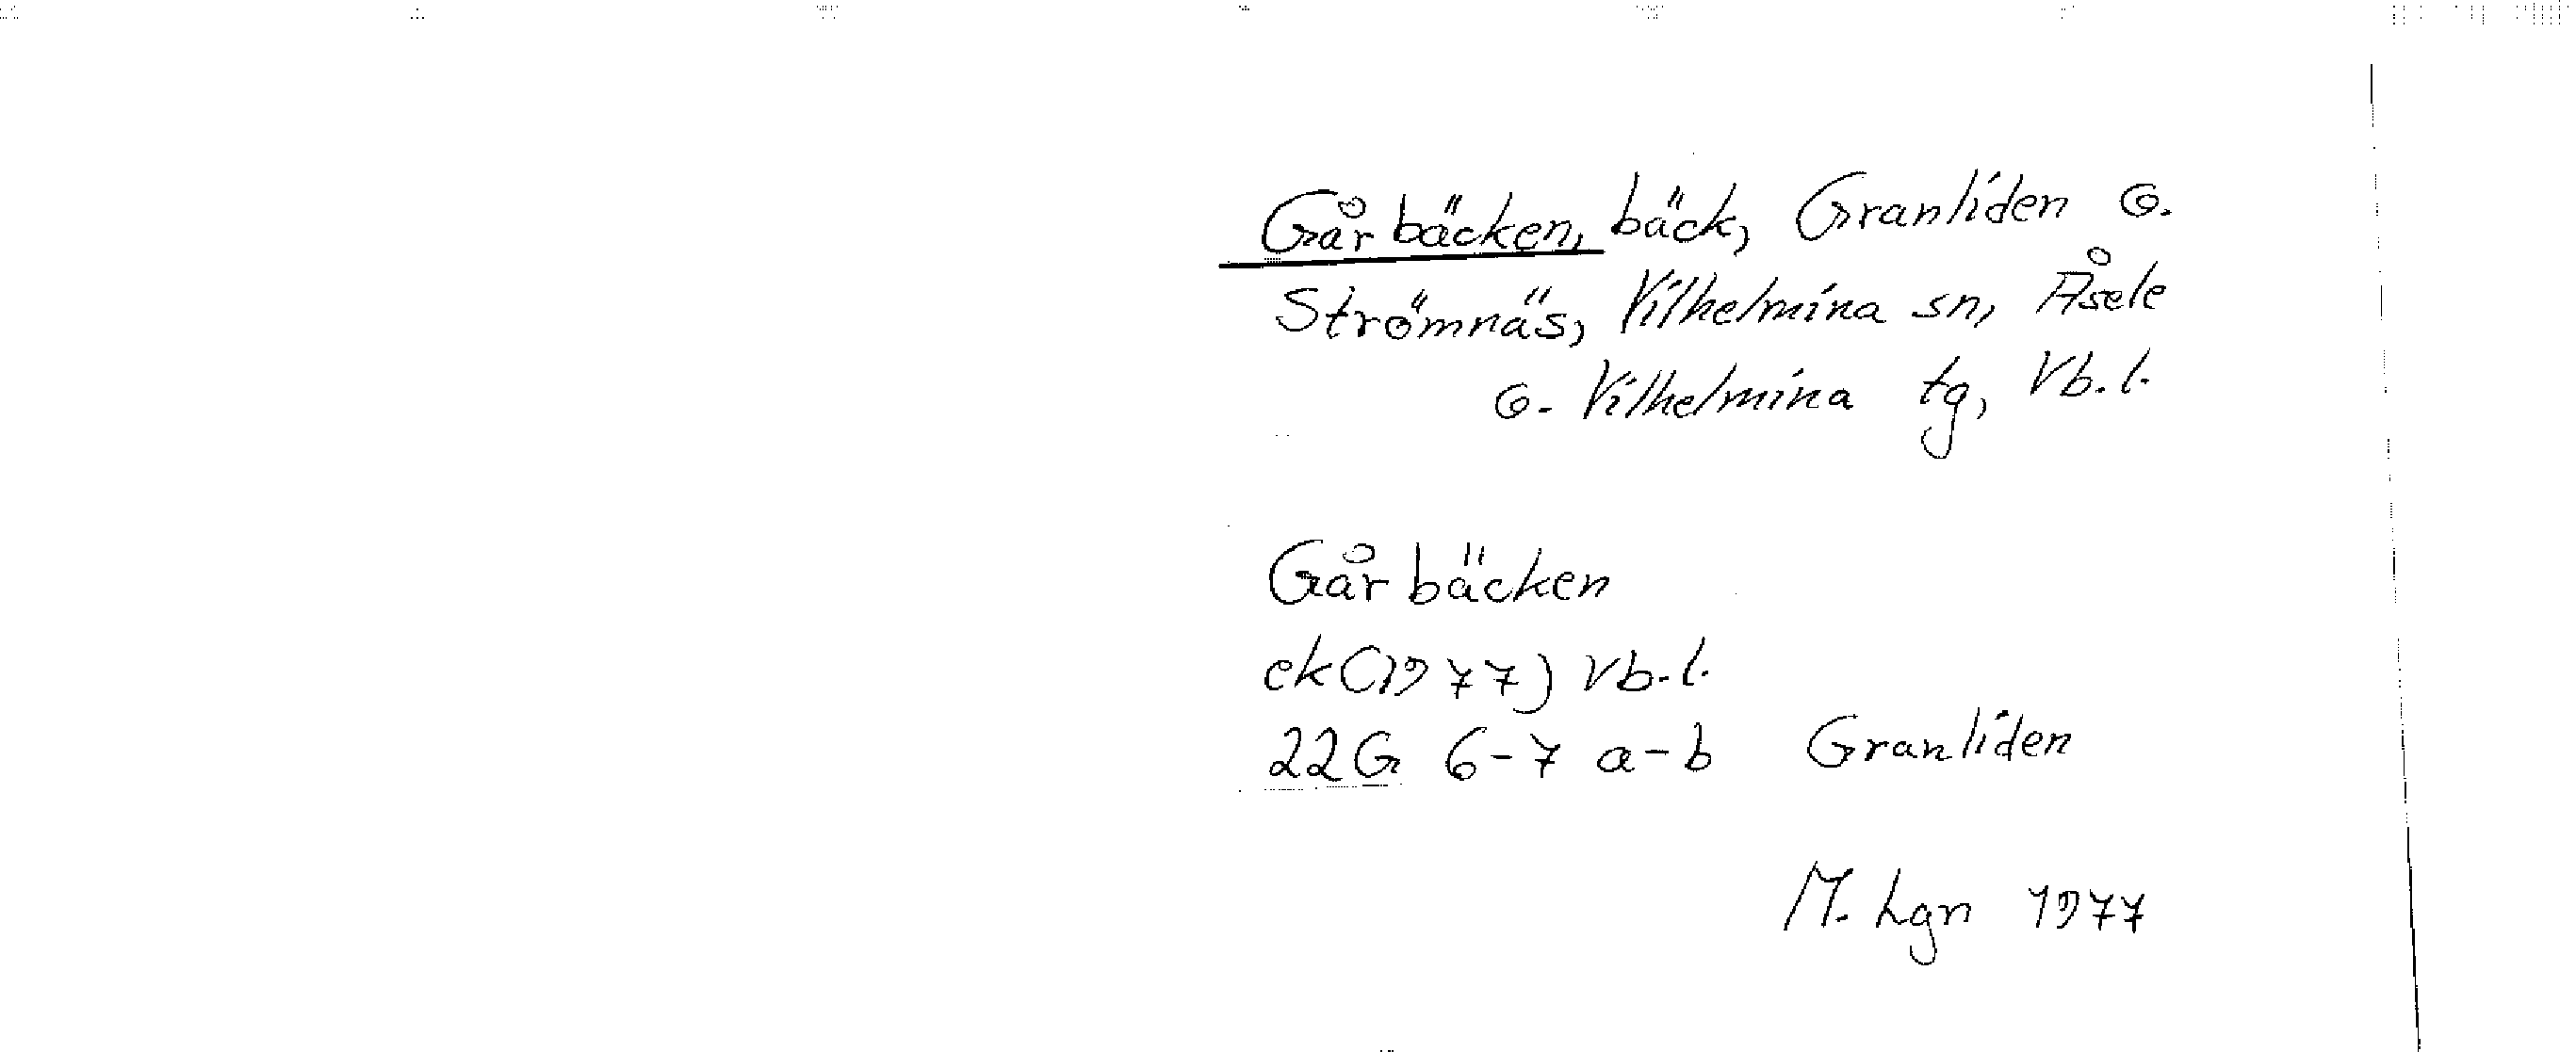 Gårbäcken, bäck, Granliden o.
Strömnäs, Vilhelmina sn, Åsele
o. Vilhelmina tg, Vb. l.
Gårbäcken
ek (1977) Vb. l.
22G 6-7 a-b Granliden
M. Lgn 1977